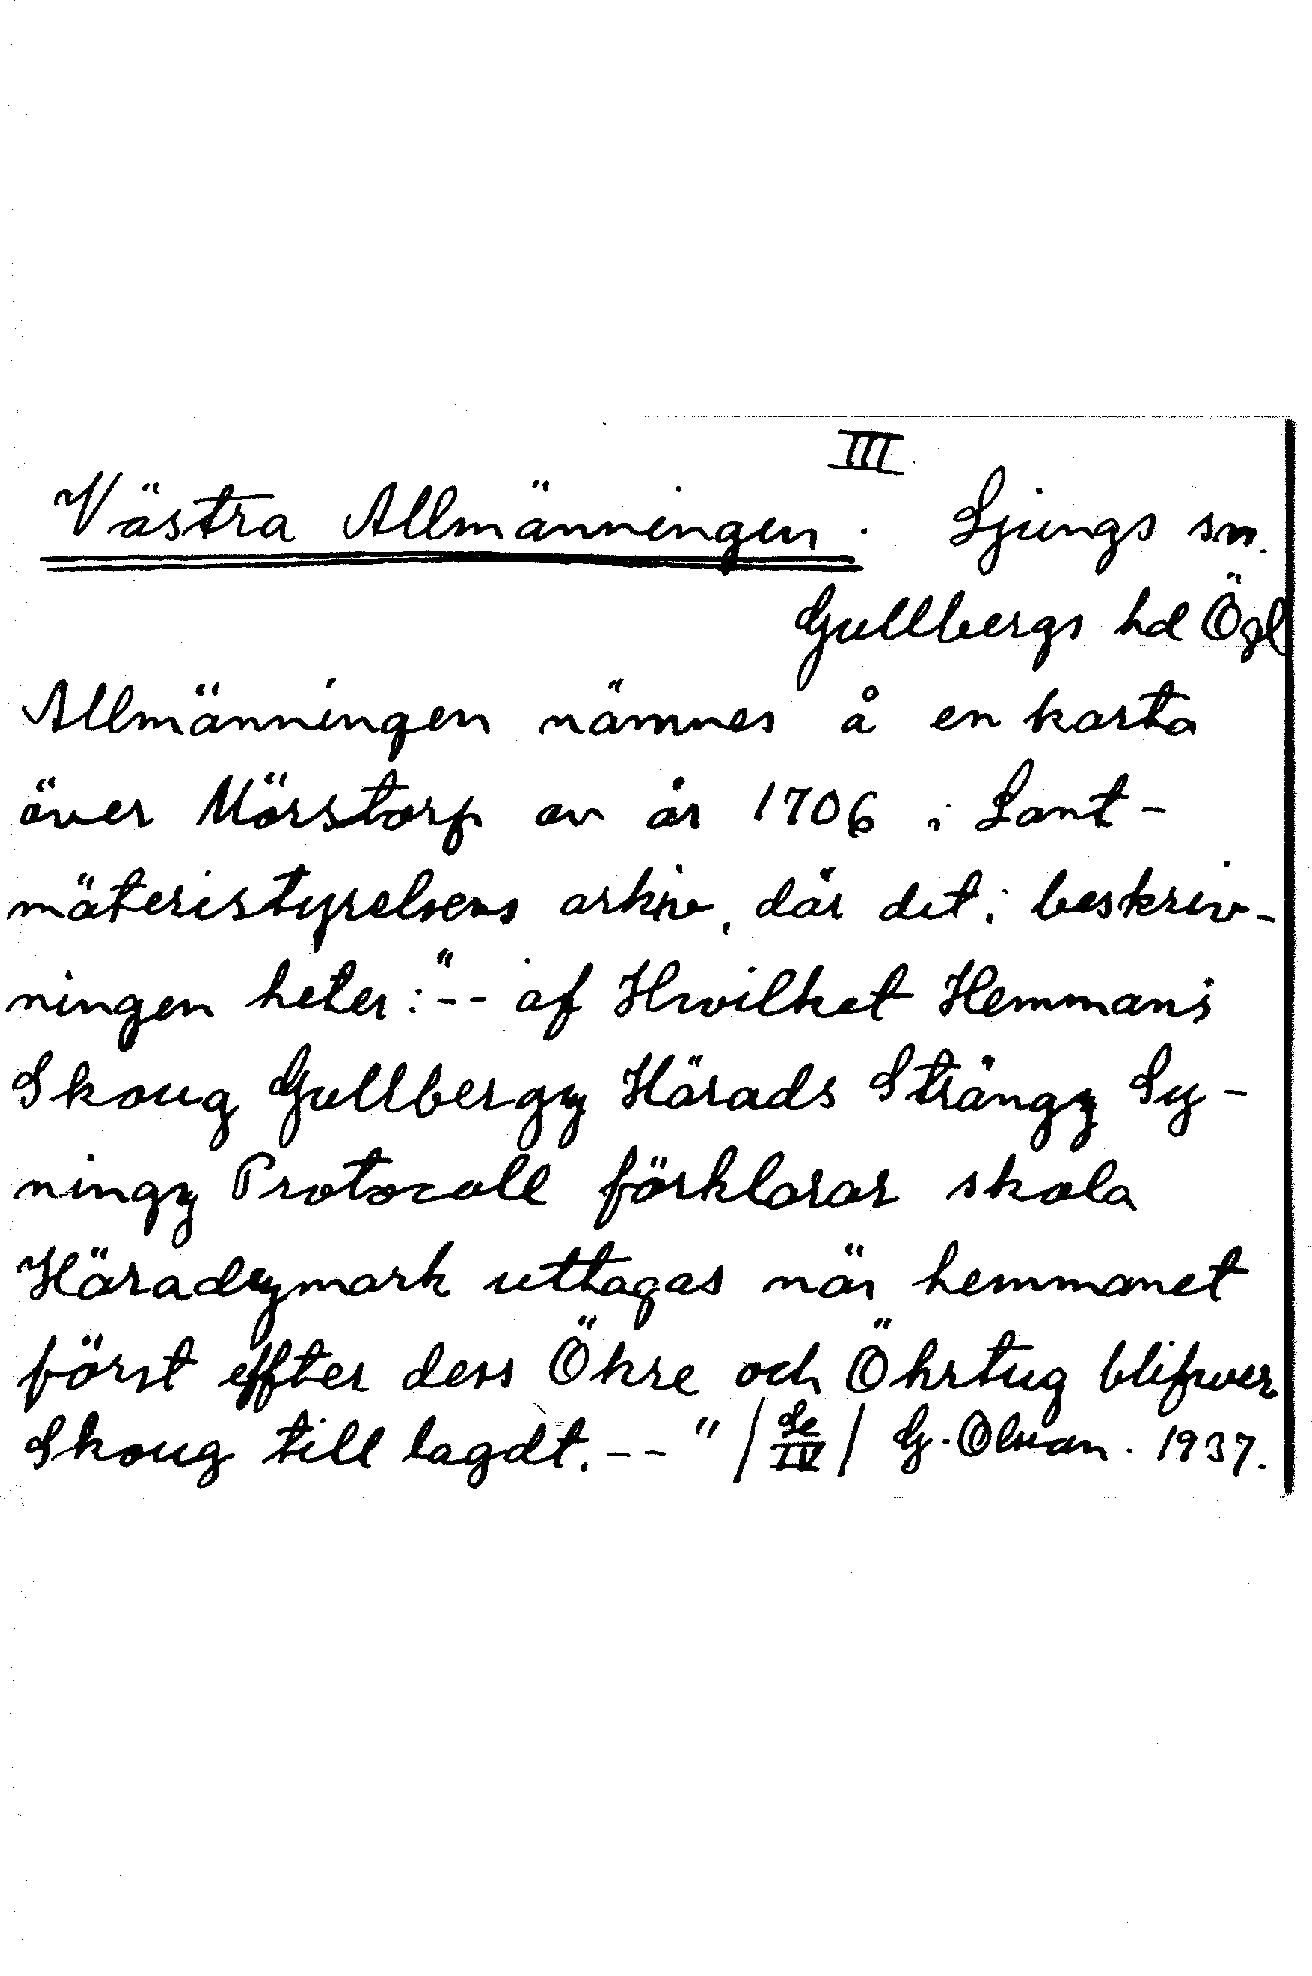 III.
Västra Allmänningen. Ljungs sn.
Gullbergs hd Ögl
Allmänningen nämnes å en karta
över Mörstorp av år 1706 i Lant-
mäteristyrelsens arkiv, där det i beskriv-
ningen heter: "-- af Hwilket Hemmans
Skoug Gullbergz Härads Strängz Sy-
ningz Protocoll förklarar skola
Häradzmark uttagas när hemmanet
först effter dess Öhre och Öhrtug blifwer
Skoug till lagdt. -- " / Se IV / G. Olson. 1937.